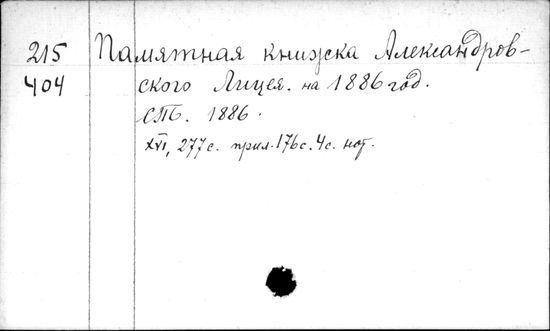 215 Памятная книжка Александров-
404 ского Лицея. на 1886 год.
СПб. 1886.
XVI, 277 с. прил. 176 с. 4 с. нот.